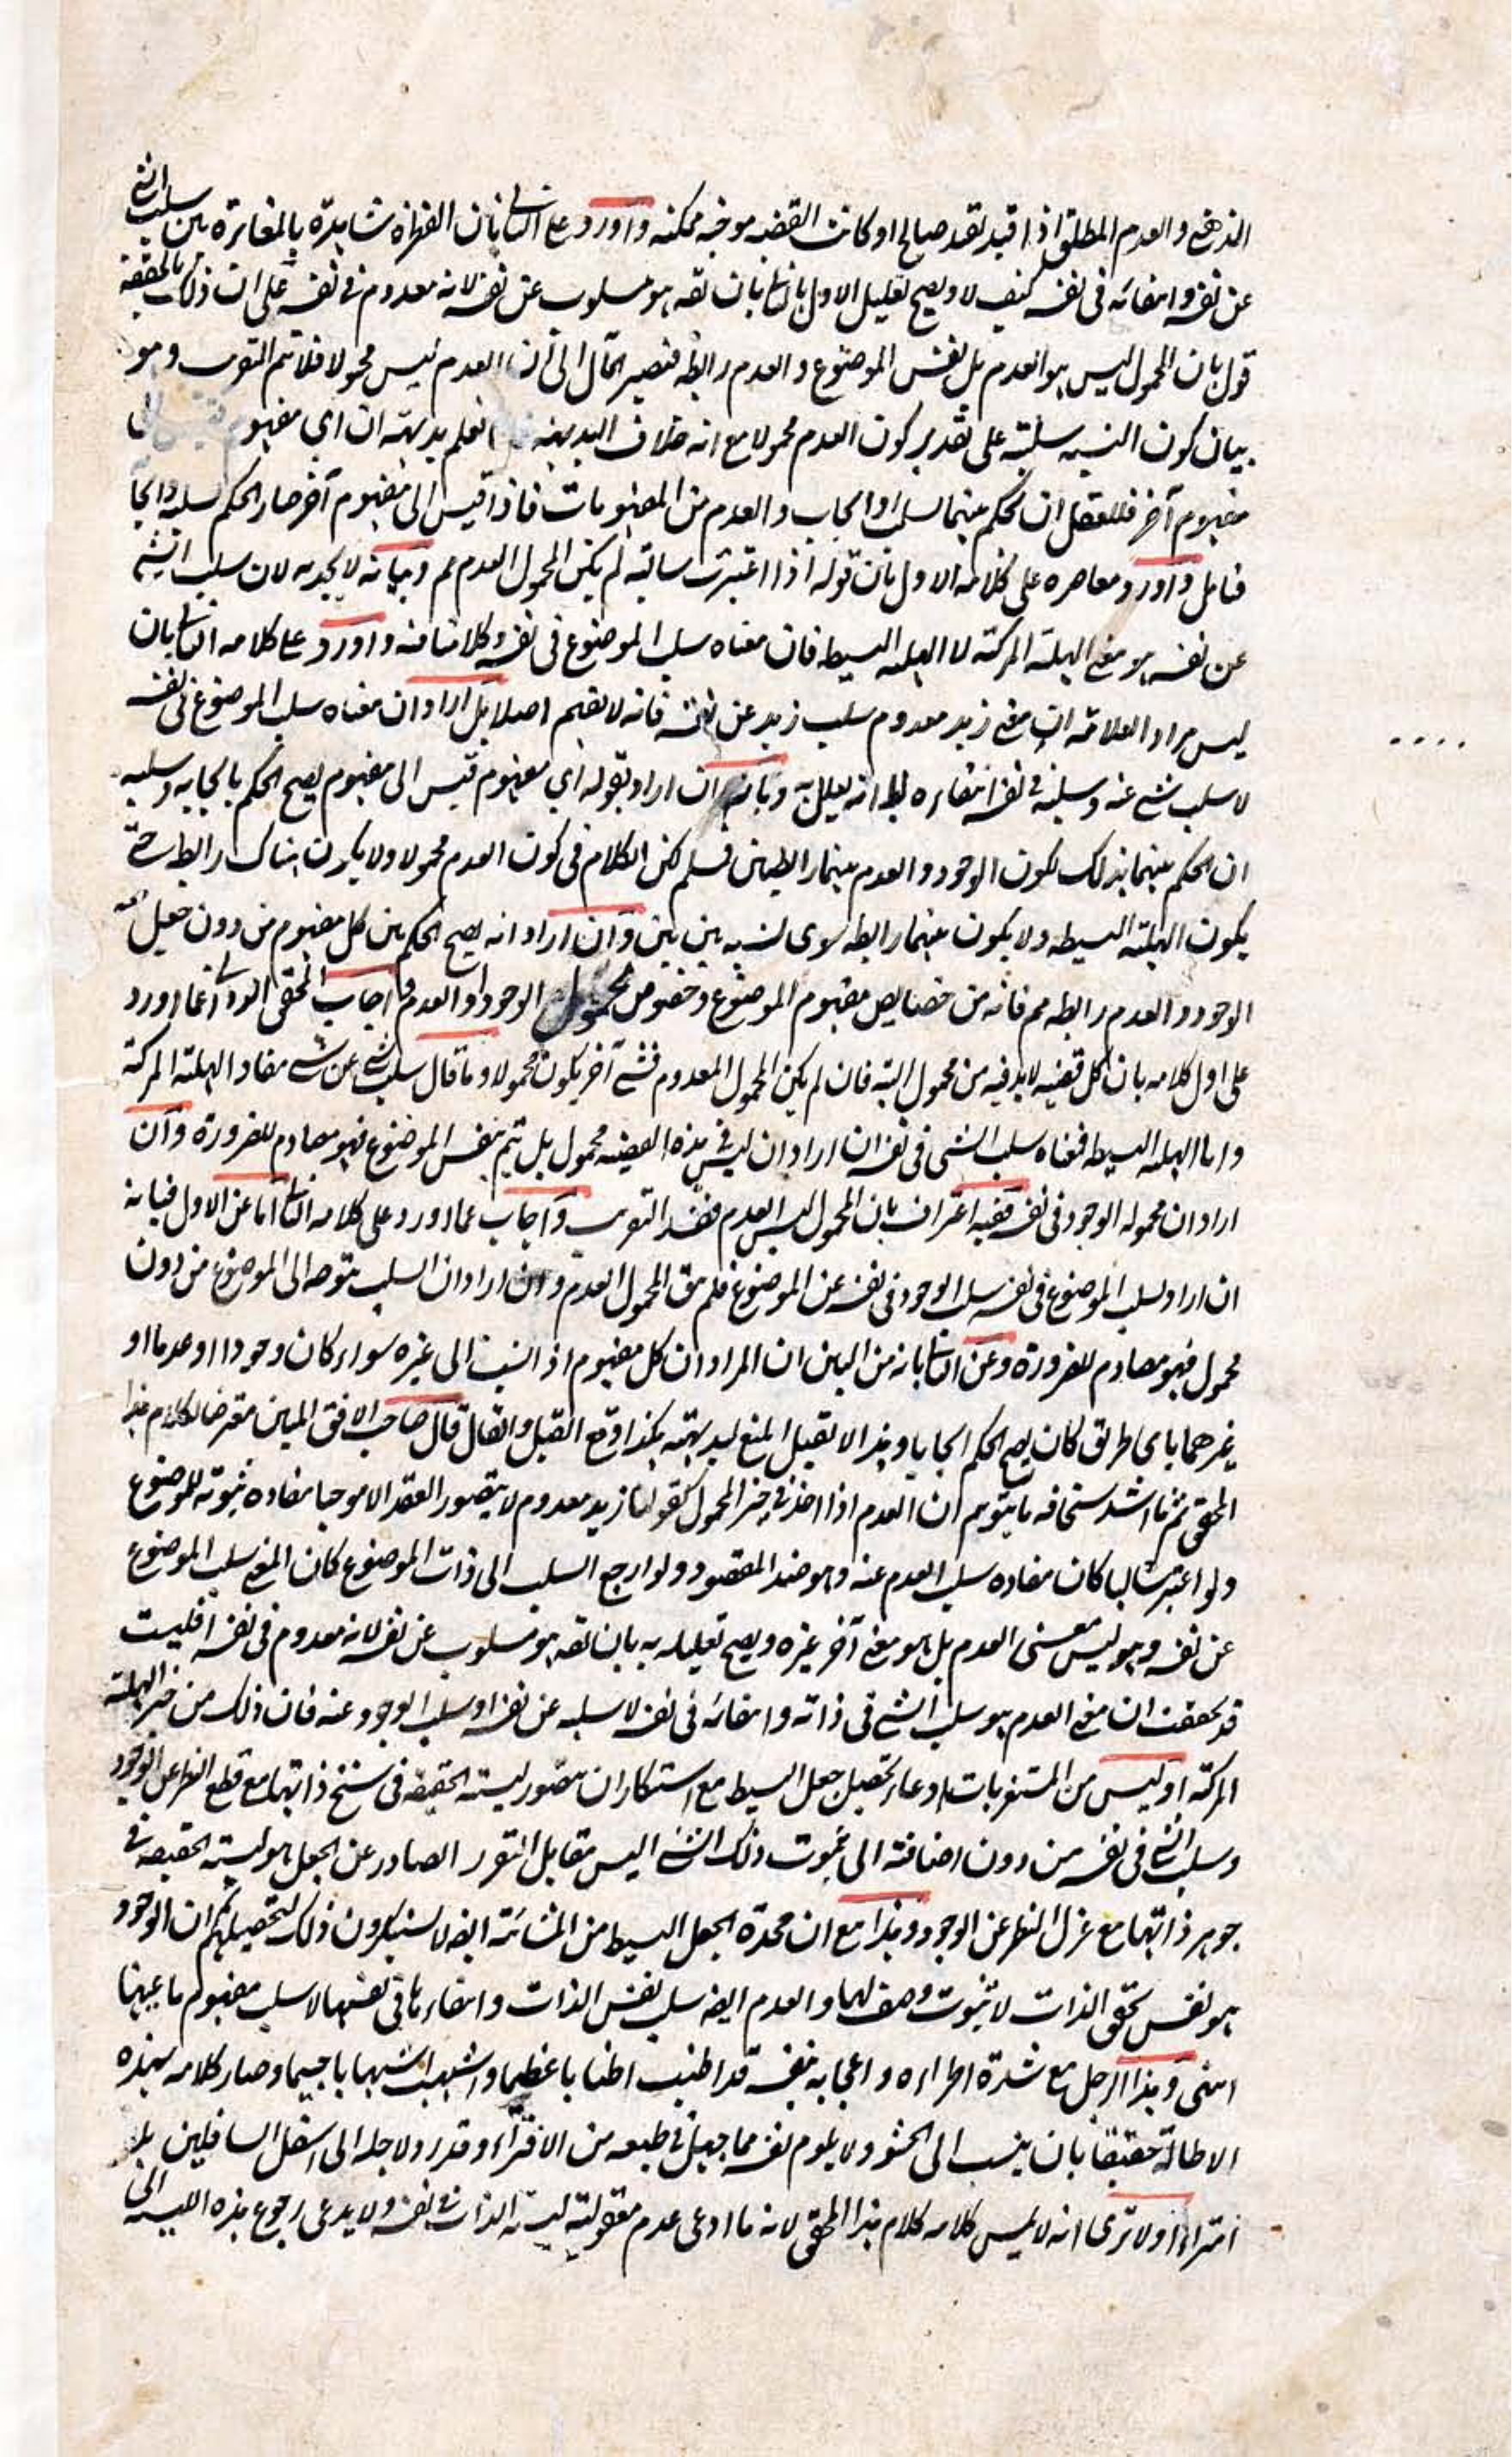 الذهني والعدم المطلق اذا قيد لقصد صالح او كانت القضيه موجبه ممكنه واورد على الثاني بان الفطرة شاهدة بالمغايرة بين سلب الشي
عن نفسه وانتفائه في نفسه كيف لا ويصح تعليل الاول بالثاني بان يقه هو مسلوب عن نفسه لانه معدوم في نفسه على ان ذلك بالحقيقة
قول بان المحمول ليس هو العدم بل نفس الموضوع والعدم رابطه فيصير المآل الى ان العدم ليس محمولا فلا تم التقريب وهو
بيان كون النسبه سلبية على تقدير كون العدم محمولا مع انه خلاف البديهه نعلم بديهة ان اي مفهوم قيس الى
مفهوم آخر فللعقل ان يحكم بينهما بسلب او ايجاب والعدم من المفهومات فاذا قيس الى مفهوم آخر صار الحكم سلبه وايجابا
فتامل واورد معاصره على كلامه الاول بان قوله اذا اعتبرت سالبة لم يكن المحمول العدم مم وبيانه لا يجديه لان سلب الشي
عن نفسه هو معنى الهلية المركبة لا الهلية البسيطه فان معناه سلب الموضوع في نفسه وكلامنا فيه واورد على كلامه الثاني بان
ليس مراد العلامة ان معنى زيد معدوم سلب زيد عن نفسه فانه لا يفهم اصلا بل اراد ان معناه سلب الموضوع في نفسه
لا سلب شي عنه وسلبه في نفسه انتفاءه لا انه يعلل به وبانه ان اراد بقوله اي مفهوم قيس الى مفهوم يصح الحكم بايجابه وسلبه
ان الحكم بينهما بذلك يكون الوجود والعدم بينهما رابطين فمسلم لكن الكلام في كون العدم محمولا ولا يكون هناك رابط حتى
يكون الهلية البسيطه ولا يكون بينهما رابطه سوى نسبه بين بين وان اراد انه يصح الحكم بين كل مفهوم من دون جعل
الوجود والعدم رابطه مم فانه من خصايص مفهوم الموضوع وخصوص محمول الوجود او العدم واجاب المحقق الدواني عما اورد
على اول كلامه بان كل قضيه لا بد فيه من محمول البته فان لم يكن المحمول المعدوم فشي آخر يكون محمولا وما قال سلب شي عن شي مفاد الهلية المركبة
واما الهلية البسيطه فمعناه سلب الشي في نفسه ان اراد ان ليس في هذه القضيه محمول بل يتم بنفس الموضوع فهو مصادم للضرورة وان
اراد ان محموله الوجود في نفسه ففيه اعتراف بان المحمول ليس العدم فيفسد التقريب واجاب عما اورد على كلامه الثاني اما عن الاول فبانه
ان اراد بسلب الموضوع في نفسه سلب الوجود في نفسه عن الموضوع فلم يبق المحمول العدم وان اراد ان السلب يتوجه الى الموضوع من دون
محمول فهو مصادم للضرورة وعن الثاني بانه من البين ان المراد ان كل مفهوم اذا نسب الى غيره سواء كان وجودا او عدما او
غيرهما باى طريق كان يصح الحكم ايجابا وهذا لا يقبل المنع لبديهته هكذا وقع القيل والقال قال صاحب الافق المبين معترضا لكلام هذا
المحقق ثم ما اشد سخافه ما يتوهم ان العدم اذا اخذ في حيز المحمول كقولنا زيد معدوم لا يتصور العقد الا موجبا مفاده ثبوته للموضوع
ولو اعتبر سالبا كان مفاده سلب العدم عنه وهو ضد المقصود ولو ارجع السلب الى ذات الموضوع كان المعنى سلب الموضوع
عن نفسه وهو ليس معنى العدم بل هو معنى آخر غيره ويصح تعليله به بان يقه هو مسلوب عن نفسه لانه معدوم في نفسه افليست
قد تحققت ان معنى العدم هو سلب الشي في ذاته وانتفائه في نفسه لا سلبه عن نفسه او سلب الوجود عنه فان ذلك من حيز الهلية
المركبة اوليس من المستغربات ادعاء تحصيل جعل البسيط مع استنكار ان يتصور ليسية الحقيقة في سنخ ذاتها مع قطع النظر عن الوجود
وسلب الشي في نفسه من دون اضافته الى ثبوت ذلك الشي اليس مقابل التقرر الصادر عن الجعل هو ليسية الحقيقة في
جوهر ذاتها مع عزل النظر عن الوجود وهذا مع ان محددة الجعل البسيط من المشائية ايضه لا يستنكرون ذلك لتحصيلهم ان الوجود
هو نفس تحقق الذات لا ثبوت وصف لها والعدم ايضه سلب نفس الذات وانتفاءها في نفسها لا سلب مفهوم ما عنها
انتهى وهذا الرجل مع شدة اطراءه واعجابه بنفسه قد اطنب اطنابا عظيما واسهب اسهابا جسيما وصار كلامه بهذه
الاطالة حقيقا بان ينسب الى الحشو ولا يلوم نفسه مما جبل في طبعه من الافتراء وقدر ولاجله الى اسفل السافلين بلا
امتراء اولا ترى انه لا يمس كلامه كلام هذا المحقق لانه ما ادعى عدم معقولية ليسية الذات في نفسه ولا يدعى رجوع هذه الليسية الى